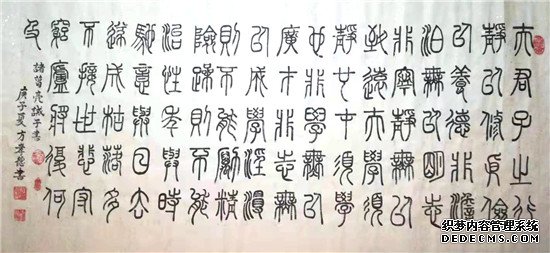 夫君子之行
靜以修身儉
以養德非澹
泊無以明志
非寧靜無以
致遠夫學須
靜也才須學
也非學無以
廣才非志無
以成學淫慢
則不能勵精
險躁則不能
治性年與時
馳意與日去
遂成枯落多
不接世悲守
窮廬將復何
及
諸葛亮誡子書
庚子夏方書
织梦内容管理系统
DEDECMS.COM